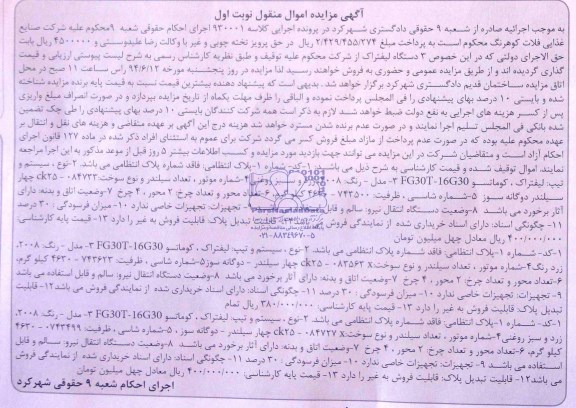 آگهی مزایده اموال منقول نوبت اول
به موجب اجرائیه صادره از شعبه ۹ حقوقی دادگستری شهرکرد در پرونده اجرایی کلاسه ۹۳۰۰۰۱ اجرای احکام حقوقی شعبه ۹محکوم علیه شرکت صنایع
غذایی فلات کوهرنگ محکوم است به پرداخت مبلغ ۲/۴۲۹/۴۵۵/۲۷۴ ریال در حق پرویز تخته چوبی و غیر با وکالت رضا علیدوستی و ۴۵۰۰۰۰۰ ریال بابت
حق الاجرای دولتی که در این خصوص ۳ دستگاه لیفتراک از شرکت محکوم علیه توقیف و طبق نظریه کارشناس رسمی به شرح لیست پیوستی ارزیابی و قیمت
گذاری گردیده اند و از طریق مزایده عمومی و حضوری به فروش خواهند رسید لذا مزایده در روز پنجشنبه مورخه ۹۴/۶/۱۲ راس ساعت ۱۱ صبح در محل
اتاق مزایده ساختمان قدیم دادگستری شهرکرد برگزار خواهد شد. بدیهی است که پیشنهاد دهنده بیشترین قیمت نسبت به قیمت پایه برنده مزایده شناخته
شده و بایستی ۱۰ درصد بهای پیشنهادی را فی المجلس پرداخت نموده و الباقی را ظرف مهلت یکماه از تاریخ مزایده بپردازد و در صورت انصراف مبلغ واریزی
پس از کسر هزینه های اجرایی به نفع دولت ضبط خواهد شد. لازم به ذکر است همه شرکت کنندگان بایستی ۱۰ درصد بهای پیشنهادی را طی چک تضمین
شده بانکی فی المجلس تسلیم اجرا نمایند و در صورت عدم برنده شدن مسترد خواهد شد هزینه درج این آگهی بر عهده متقاضی و هزینه های نقل و انتقال بر
عهده محکوم علیه بوده که در صورت عدم پرداخت از مازاد مبلغ فروش کسر می گردد شرکت برای عموم به استثنای افراد ذکر شده در ماده ۱۲۷ قانون اجرای
احکام آزاد است و متقاضیان شرکت در این مزایده می توانند جهت بازدید مورد مزایده و کسب اطلاعات بیشتر ۵ روز قبل از موعد مذکور به این اجرا مراجعه
نمایند. اموال توقیف شده و قیمت کارشناسی به شرح ذیل می باشد: ۱-کد- شماره ۱-پلاک انتظامی: فاقد شماره پلاک انتظامی می باشد. ۲-نوع ، سیستم و
تیپ: لیفتراک ، کوماتسو FG30T-16G30 ۳- مدل - رنگ: ۲۰۰۸، زرد و سبز روغنی ۴-شماره موتور ، تعداد سیلندر و نوع سوخت ck25 - ۰۸۴۷۲۳ چهار
آثار برخورد می باشد ۸-وضعیت دستگاه انتقال نیرو: سالم و قابل استفاده می باشد ۹- تجهیزات: تجهیزات خاصی ندارد ۱۰- میزان فرسودگی : ۳۰ درصد
۴۰۰/۰۰۰/۰۰۰ ریال معادل چهل میلیون تومان
۱-کد- شماره ۱-پلاک انتظامی: فاقد شماره پلاک انتظامی می باشد. ۲-نوع ، سیستم و تیپ: لیفتراک ، کوماتسو FG30T-16G30 ۳- مدل - رنگ: ۲۰۰۸،
زرد رنگ۴-شماره موتور ، تعداد سیلندر و نوع سوخت: ck25 - ۰۸۳۵۶۲x چهار سیلندر - دوگانه سوز۵-شماره شاسی ، ظرفیت: ۷۴۳۶۲۳ - ۴۶۳۰ کیلو گرم،
۶-تعداد محور و تعداد چرخ: ۲ محور ، ۴ چرخ ۷-وضعیت اتاق و بدنه: دارای آثار برخورد می باشد ۸-وضعیت دستگاه انتقال نیرو: سالم و قابل استفاده می باشد
۹- تجهیزات: تجهیزات خاصی ندارد ۱۰- میزان فرسودگی : ۳۰ درصد ۱۱-چگونگی اسناد: دارای اسناد خریداری شده از نمایندگی فروش می باشد۱۲- قابلیت
تبدیل پلاک: قابلیت فروش به غیر را دارد ۱۳- قیمت پایه کارشناسی: ۳۸۰/۰۰۰/۰۰۰ ریال تمام
۱-کد- شماره ۱-پلاک انتظامی: فاقد شماره پلاک انتظامی می باشد. ۲-نوع ، سیستم و تیپ: لیفتراک ، کوماتسو FG30T-16G30 ۳- مدل - رنگ: ۲۰۰۸،
زرد و سبز روغنی ۴-شماره موتور ، تعداد سیلندر و نوع سوخت: ck25 - ۰۸۴۷۲۷x چهار سیلندر - دوگانه سوز ۵-شماره شاسی ، ظرفیت: ۰۷۴۳۴۹۹ - ۴۶۳۰
کیلو گرم، ۶-تعداد محور و تعداد چرخ: ۲ محور ، ۴ چرخ ۷-وضعیت اتاق و بدنه: دارای آثار برخورد می باشد ۸-وضعیت دستگاه انتقال نیرو: سالم و قابل
استفاده می باشد ۹- تجهیزات: تجهیزات خاصی ندارد ۱۰- میزان فرسودگی : ۳۰ درصد ۱۱-چگونگی اسناد: دارای اسناد خریداری شده از نمایندگی فروش
می باشد۱۲- قابلیت تبدیل پلاک: قابلیت فروش به غیر را دارد ۱۳- قیمت پایه کارشناسی: ۴۰۰/۰۰۰/۰۰۰ ریال معادل چهل میلیون تومان
اجرای احکام شعبه ۹ حقوقی شهرکرد